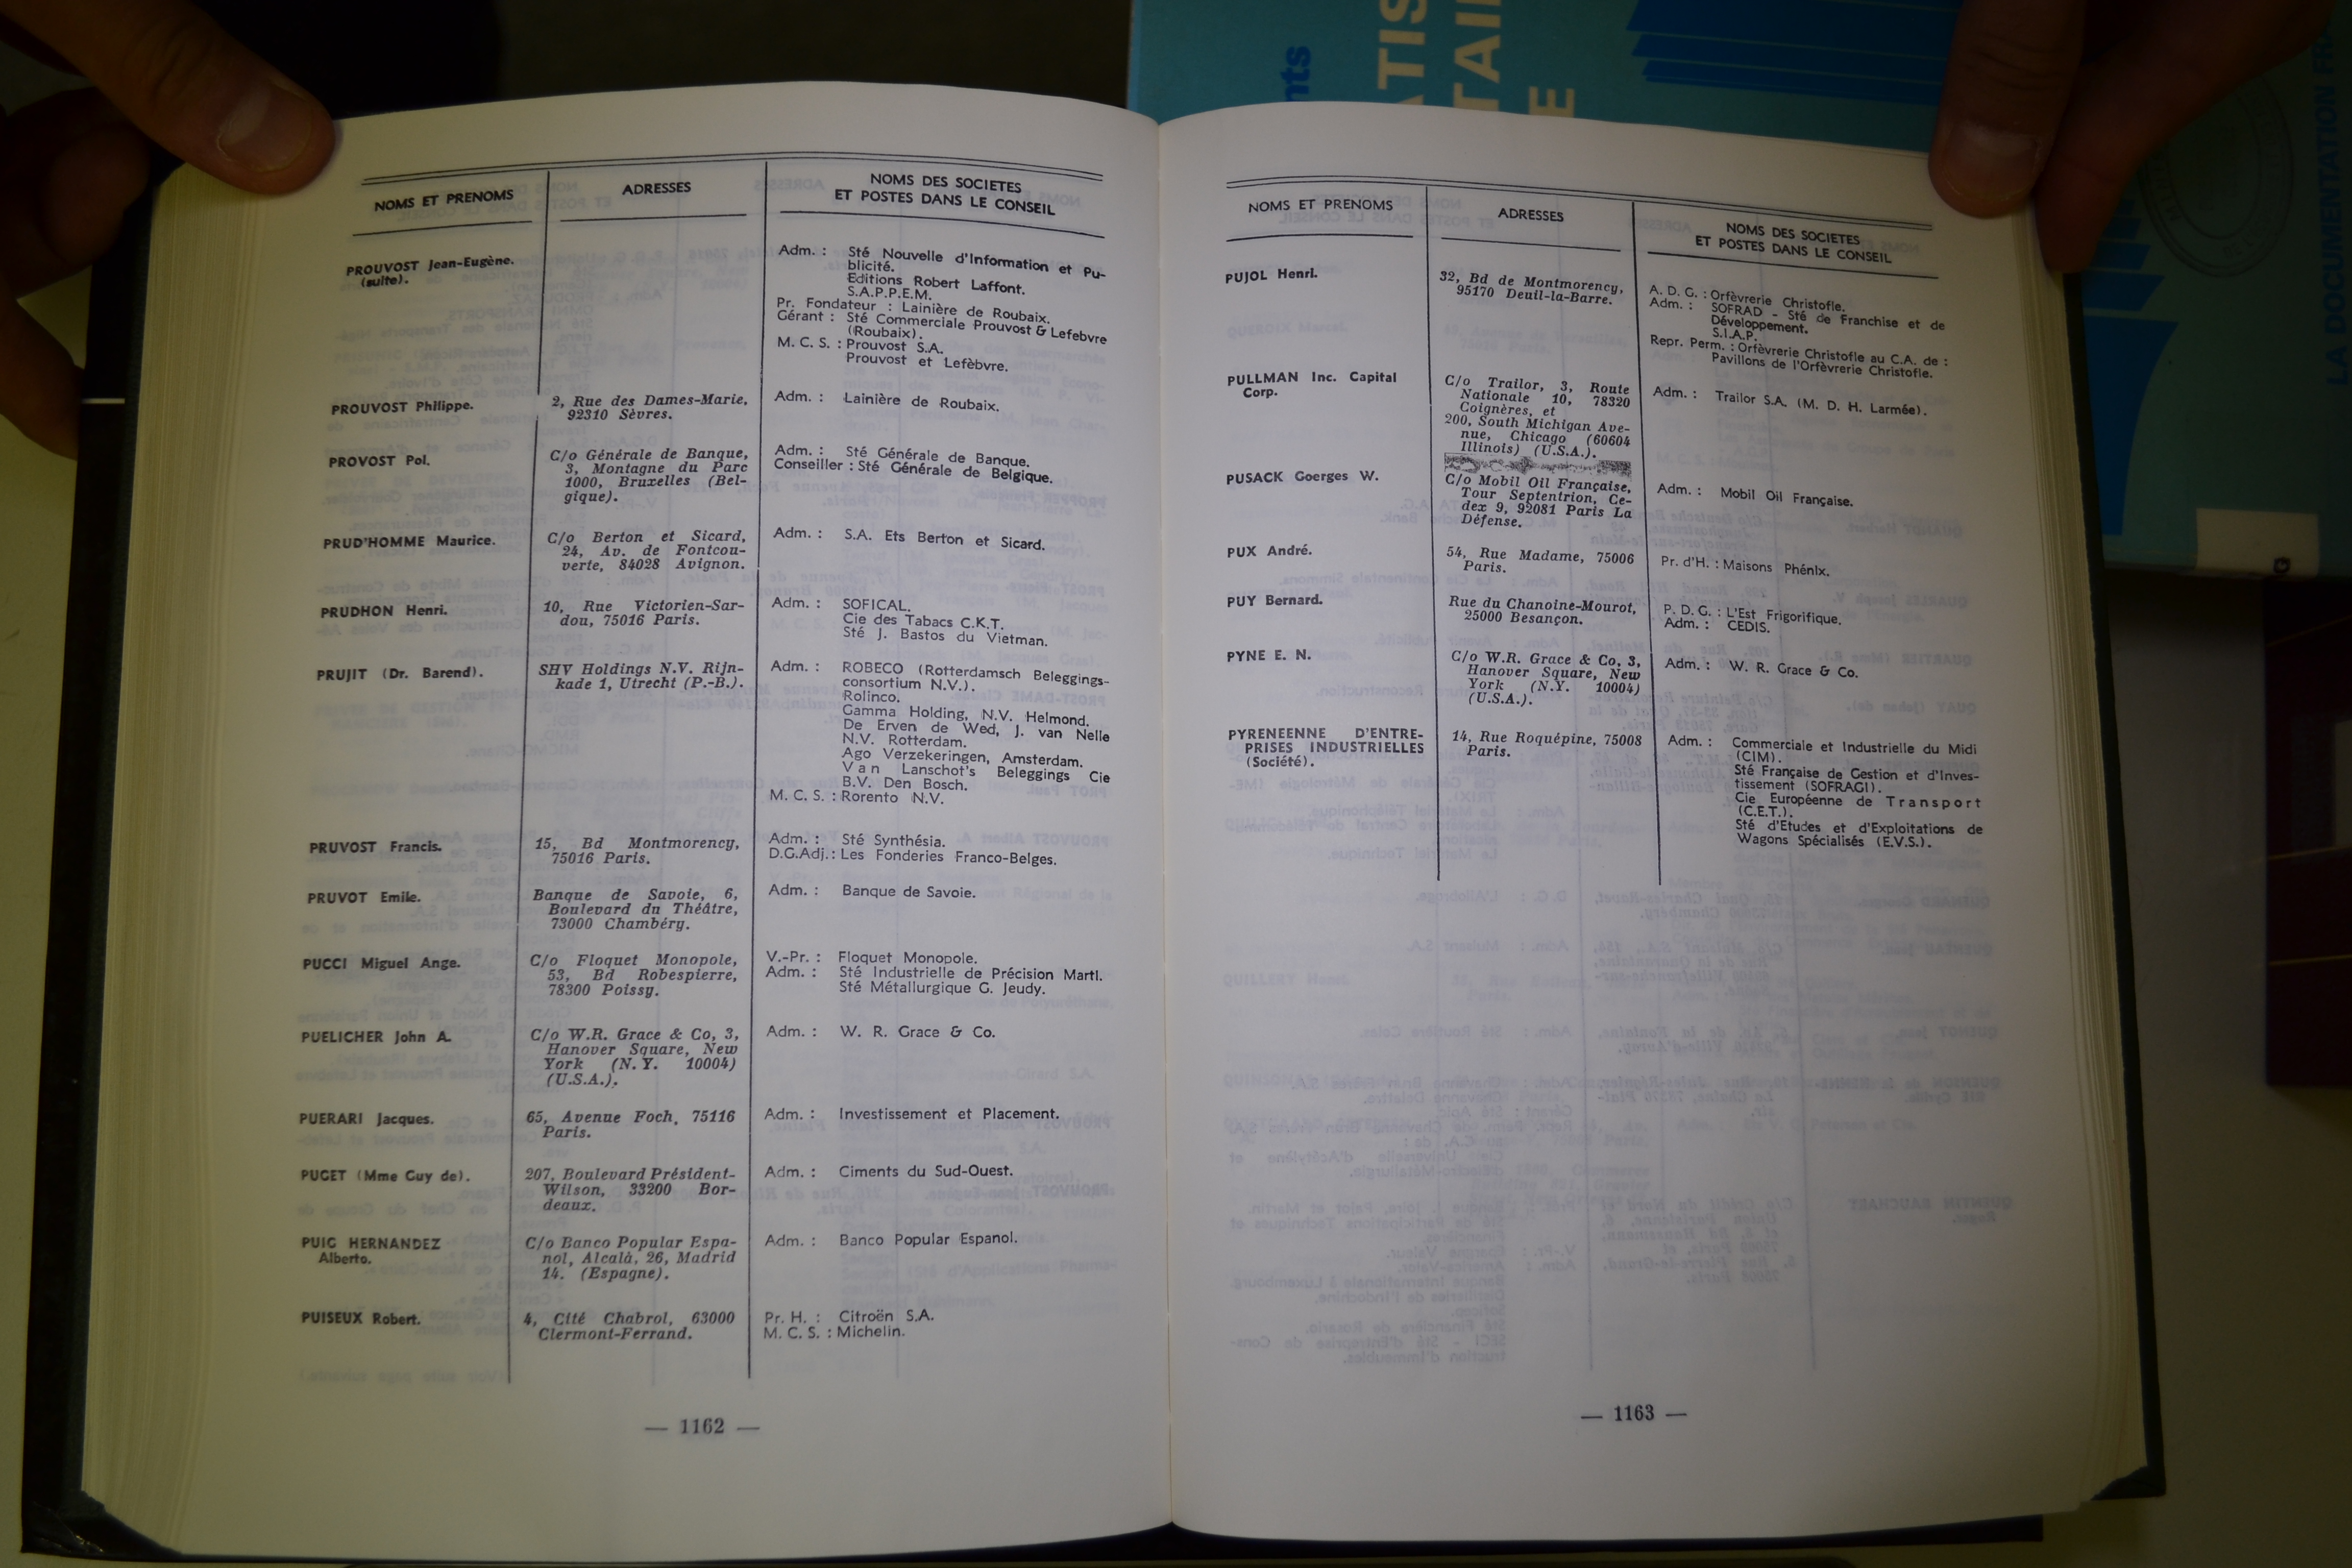 NOMS ET PRENOMS
ADRESSES
NOMS DES SOCIETES
ET POSTES DANS LE CONSEIL
PROUVOST Jean-Eugène.
(suite).
Adm. : Sté Nouvelle d'Information et Pu-
blicité.
Editions Robert Laffont.
S.A.P.P.E.M.
Pr. Fondateur : Lainière de Roubaix.
Gérant : Sté Commerciale Prouvost & Lefebvre
(Roubaix).
M. C. S. : Prouvost S.A.
Prouvost et Lefèbvre.
PROUVOST Philippe.
2, Rue des Dames-Marie,
92310 Sèvres.
Adm. : Lainière de Roubaix.
PROVOST Pol.
C/o Générale de Banque,
3, Montagne du Parc
1000, Bruxelles (Bel-
gique).
Adm. : Sté Générale de Banque.
Conseiller : Sté Générale de Belgique.
PRUD'HOMME Maurice.
C/o Berton et Sicard,
24, Av. de Fontcou-
verte, 84028 Avignon.
Adm. : S.A. Ets Berton et Sicard.
PRUDHON Henri.
10, Rue Victorien-Sar-
dou, 75016 Paris.
Adm. : SOFICAL.
Cie des Tabacs C.K.T.
Sté J. Bastos du Vietman.
PRUJIT (Dr. Barend).
SHV Holdings N.V. Rijn-
kade 1, Utrecht (P.-B.).
Adm. : ROBECO (Rotterdamsch Beleggings-
consortium N.V.).
Rolinco.
Gamma Holding, N.V. Helmond.
De Erven de Wed, J. van Nelle
N.V. Rotterdam.
Ago Verzekeringen, Amsterdam.
Van Lanschot's Beleggings Cie
B.V. Den Bosch.
M. C. S. : Rorento N.V.
PRUVOST Francis.
15, Bd Montmorency,
75016 Paris.
Adm. : Sté Synthésia.
D.G.Adj. : Les Fonderies Franco-Belges.
PRUVOT Emile.
Banque de Savoie, 6,
Boulevard du Théâtre,
73000 Chambéry.
Adm. : Banque de Savoie.
PUCCI Miguel Ange.
C/o Floquet Monopole,
53, Bd Robespierre,
78300 Poissy.
V.-Pr. : Floquet Monopole.
Adm. : Sté Industrielle de Précision Martl.
Sté Métallurgique G. Jeudy.
PUELICHER John A.
C/o W.R. Grace & Co, 3,
Hanover Square, New
York (N.Y. 10004)
(U.S.A.).
Adm. : W. R. Grace & Co.
PUERARI Jacques.
65, Avenue Foch, 75116
Paris.
Adm. : Investissement et Placement.
PUGET (Mme Guy de).
207, Boulevard Président-
Wilson, 33200 Bor-
deaux.
Adm. : Ciments du Sud-Ouest.
PUIG HERNANDEZ
Alberto.
C/o Banco Popular Espa-
nol, Alcalà, 26, Madrid
14. (Espagne).
Adm. : Banco Popular Espanol.
PUISEUX Robert.
4, Cité Chabrol, 63000
Clermont-Ferrand.
Pr. H. : Citroën S.A.
M. C. S. : Michelin.
— 1162 —
NOMS ET PRENOMS
ADRESSES
NOMS DES SOCIETES
ET POSTES DANS LE CONSEIL
PUJOL Henri.
32, Bd de Montmorency,
95170 Deuil-la-Barre.
A. D. G. : Orfèvrerie Christofle.
Adm. : SOFRAD - Sté de Franchise et de
Développement.
S.I.A.P.
Repr. Perm. : Orfèvrerie Christofle au C.A. de :
Pavillons de l'Orfèvrerie Christofle.
PULLMAN Inc. Capital
Corp.
C/o Trailor, 3, Route
Nationale 10, 78320
Coignères, et
200, South Michigan Ave-
nue, Chicago (60604
Illinois) (U.S.A.).
Adm. : Trailor S.A. (M. D. H. Larmée).
PUSACK Goerges W.
C/o Mobil Oil Française,
Tour Septentrion, Ce-
dex 9, 92081 Paris La
Défense.
Adm. : Mobil Oil Française.
PUX André.
54, Rue Madame, 75006
Paris.
Pr. d'H. : Maisons Phénix.
PUY Bernard.
Rue du Chanoine-Mourot,
25000 Besançon.
P. D. G. : L'Est Frigorifique.
Adm. : CEDIS.
PYNE E. N.
C/o W.R. Grace & Co, 3,
Hanover Square, New
York (N.Y. 10004)
(U.S.A.).
Adm. : W. R. Grace & Co.
PYRENEENNE D'ENTRE-
PRISES INDUSTRIELLES
(Société).
14, Rue Roquépine, 75008
Paris.
Adm. : Commerciale et Industrielle du Midi
(CIM).
Sté Française de Gestion et d'Inves-
tissement (SOFRAGI).
Cie Européenne de Transport
(C.E.T.).
Sté d'Etudes et d'Exploitations de
Wagons Spécialisés (E.V.S.).
— 1163 —
LA DOCUMENTATION FR